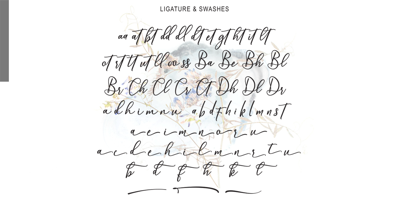 LIGATURE & SWASHES
aa at bt dd dl dt et gt ht it lt
ot rt tt ut ll oo ss Ba Be Bh Bl
Br Ch Cl Cr Ct Dh Dl Dr
a d h i m n u a b d f h i k l m n s t
a e i m n o r u
a c d e h i l m n r t u
b d f h k t